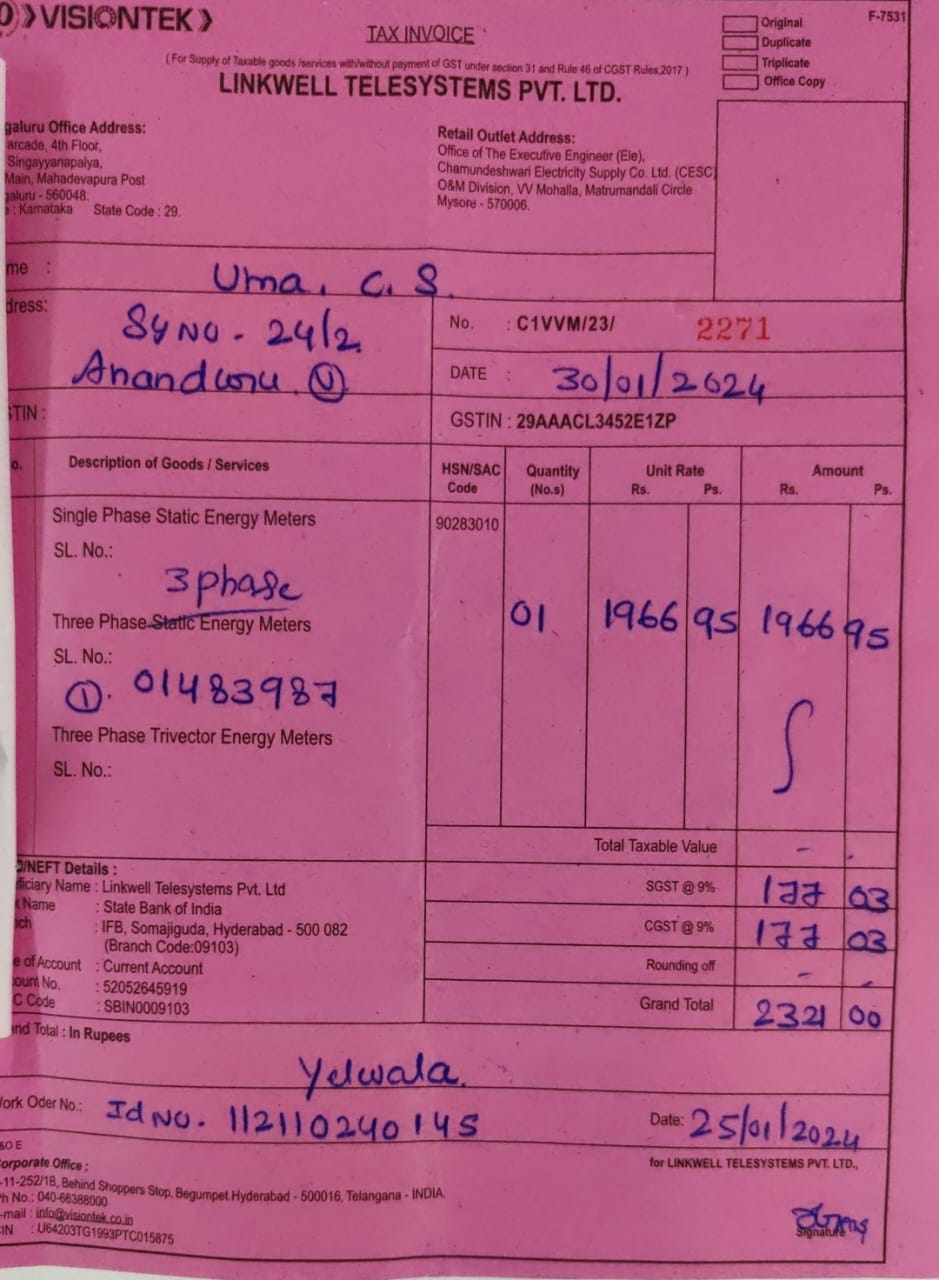 VISIONTEK
TAX INVOICE
F-7531
Original
Duplicate
Triplicate
Office Copy
( For Supply of Taxable goods /services with/without payment of GST under section 31 and Rule 46 of CGST Rules,2017 )
LINKWELL TELESYSTEMS PVT. LTD.
galuru Office Address:
arcade, 4th Floor,
Singayyanapalya,
Main, Mahadevapura Post
galuru - 560048.
: Karnataka State Code : 29.
Retail Outlet Address:
Office of The Executive Engineer (Ele),
Chamundeshwari Electricity Supply Co. Ltd. (CESC)
O&M Division, VV Mohalla, Matrumandali Circle
Mysore - 570006.
me : Uma. C. S.
dress: Sy NO - 24/2
Anandooru (V)
No. : C1VVM/23/ 2271
DATE : 30/01/2024
TIN :
GSTIN : 29AAACL3452E1ZP
o. Description of Goods / Services HSN/SAC Code Quantity (No.s) Unit Rate Rs. Ps. Amount Rs. Ps.
Single Phase Static Energy Meters 90283010
SL. No.:
3 phase
Three Phase Static Energy Meters 01 1966 95 1966 95
SL. No.:
①. 01483987
Three Phase Trivector Energy Meters
SL. No.:
Total Taxable Value - .
SGST @ 9% 177 03
CGST @ 9% 177 03
Rounding off - -
Grand Total 2321 00
/NEFT Details :
ficiary Name : Linkwell Telesystems Pvt. Ltd
Name : State Bank of India
ch : IFB, Somajiguda, Hyderabad - 500 082
(Branch Code:09103)
e of Account : Current Account
ount No. : 52052645919
C Code : SBIN0009103
nd Total : In Rupees
Yelwala.
ork Oder No.: Id NO. 112110240145 Date: 25/01/2024
&O E
orporate Office :
-11-252/1B, Behind Shoppers Stop, Begumpet Hyderabad - 500016, Telangana - INDIA.
h No.: 040-66388000
-mail : info@visiontek.co.in
IN : U64203TG1993PTC015875
for LINKWELL TELESYSTEMS PVT. LTD.,
Signature